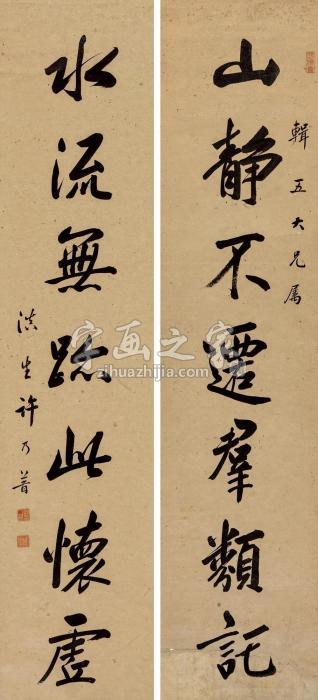 山静不遷羣類託
輯五大兄属
水流無跡此懷虛
滇生許乃普
字画之家
zihuazhijia.com